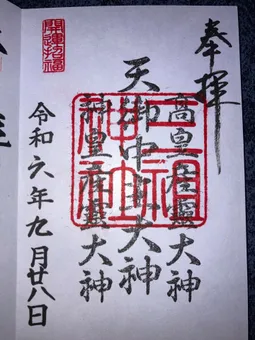 奉拝
高皇産靈大神
天御中主大神
神皇産靈大神
三祖
神社
開運招福
令和六年九月廿八日